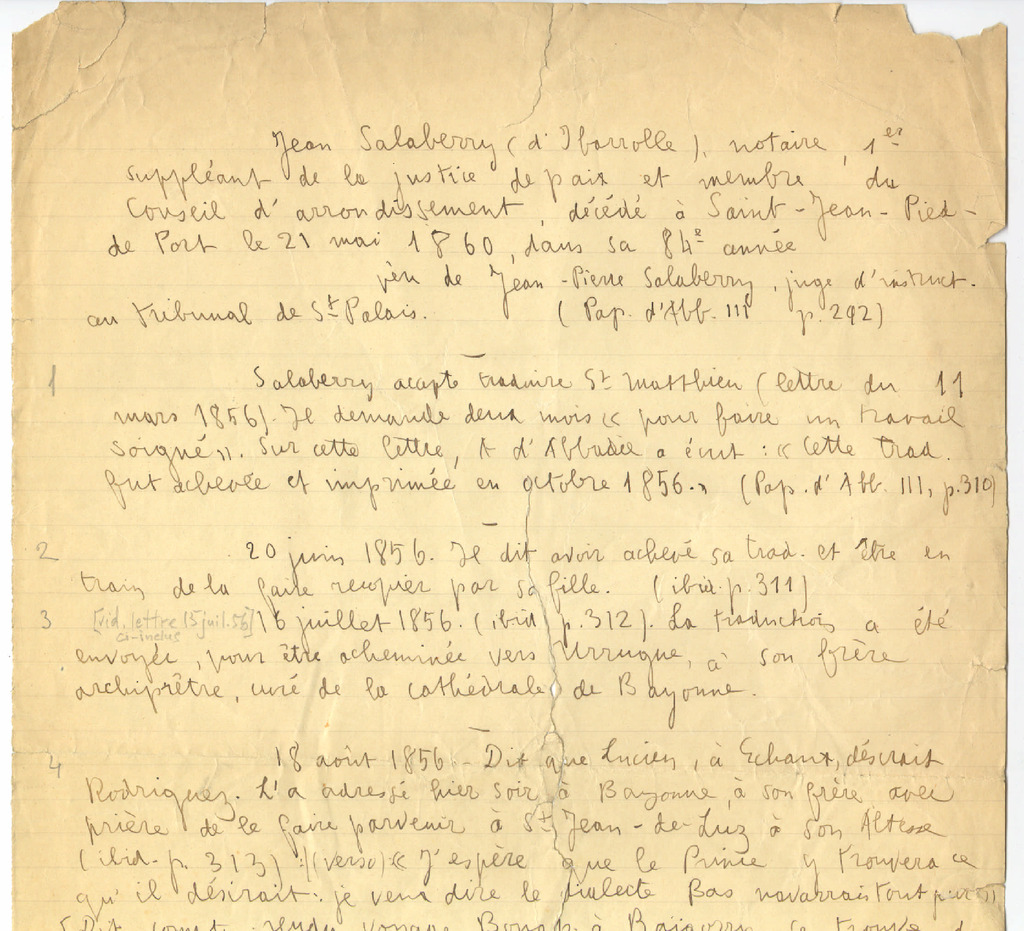 Jean Salaberry (d'Ibarrolle), notaire, 1er
suppléant de la justice de paix et membre du
Conseil d'arrondissement, décédé à Saint-Jean-Pied-
de Port le 21 mai 1860, dans sa 84e année
père de Jean-Pierre Salaberry, juge d'instruct.
au tribunal de St Palais. (Pap. d'Abb. III p. 292)
1 Salaberry accepte traduire St Matthieu (lettre du 11
mars 1856). Il demande deux mois « pour faire un travail
soigné ». Sur cette lettre, A d'Abbadie a écrit : « Cette trad.
fut achevée et imprimée en octobre 1856. » (Pap. d'Abb. III, p.310)
2 20 juin 1856. Il dit avoir achevé sa trad. et être en
train de la faire recopier par sa fille. (ibid. p. 311)
3 [vid. lettre 15 juil. 56] 16 juillet 1856. (ibid. p. 312). La traduction a été
ci-inclus
envoyée, pour être acheminée vers Urrugne, à son frère
archiprêtre, curé de la cathédrale de Bayonne.
4 18 août 1856 - Dit que Lucien, à Echaux, désirait
Rodriguez. L'a adressé hier soir à Bayonne, à son frère avec
prière de le faire parvenir à St Jean-de-Luz à Son Altesse
(ibid. p. 313) : (verso) « J'espère que le Prince y trouvera ce
qu'il désirait : je veux dire le dialecte Bas navarrais tout pur »
Dit voyage Bonap. à